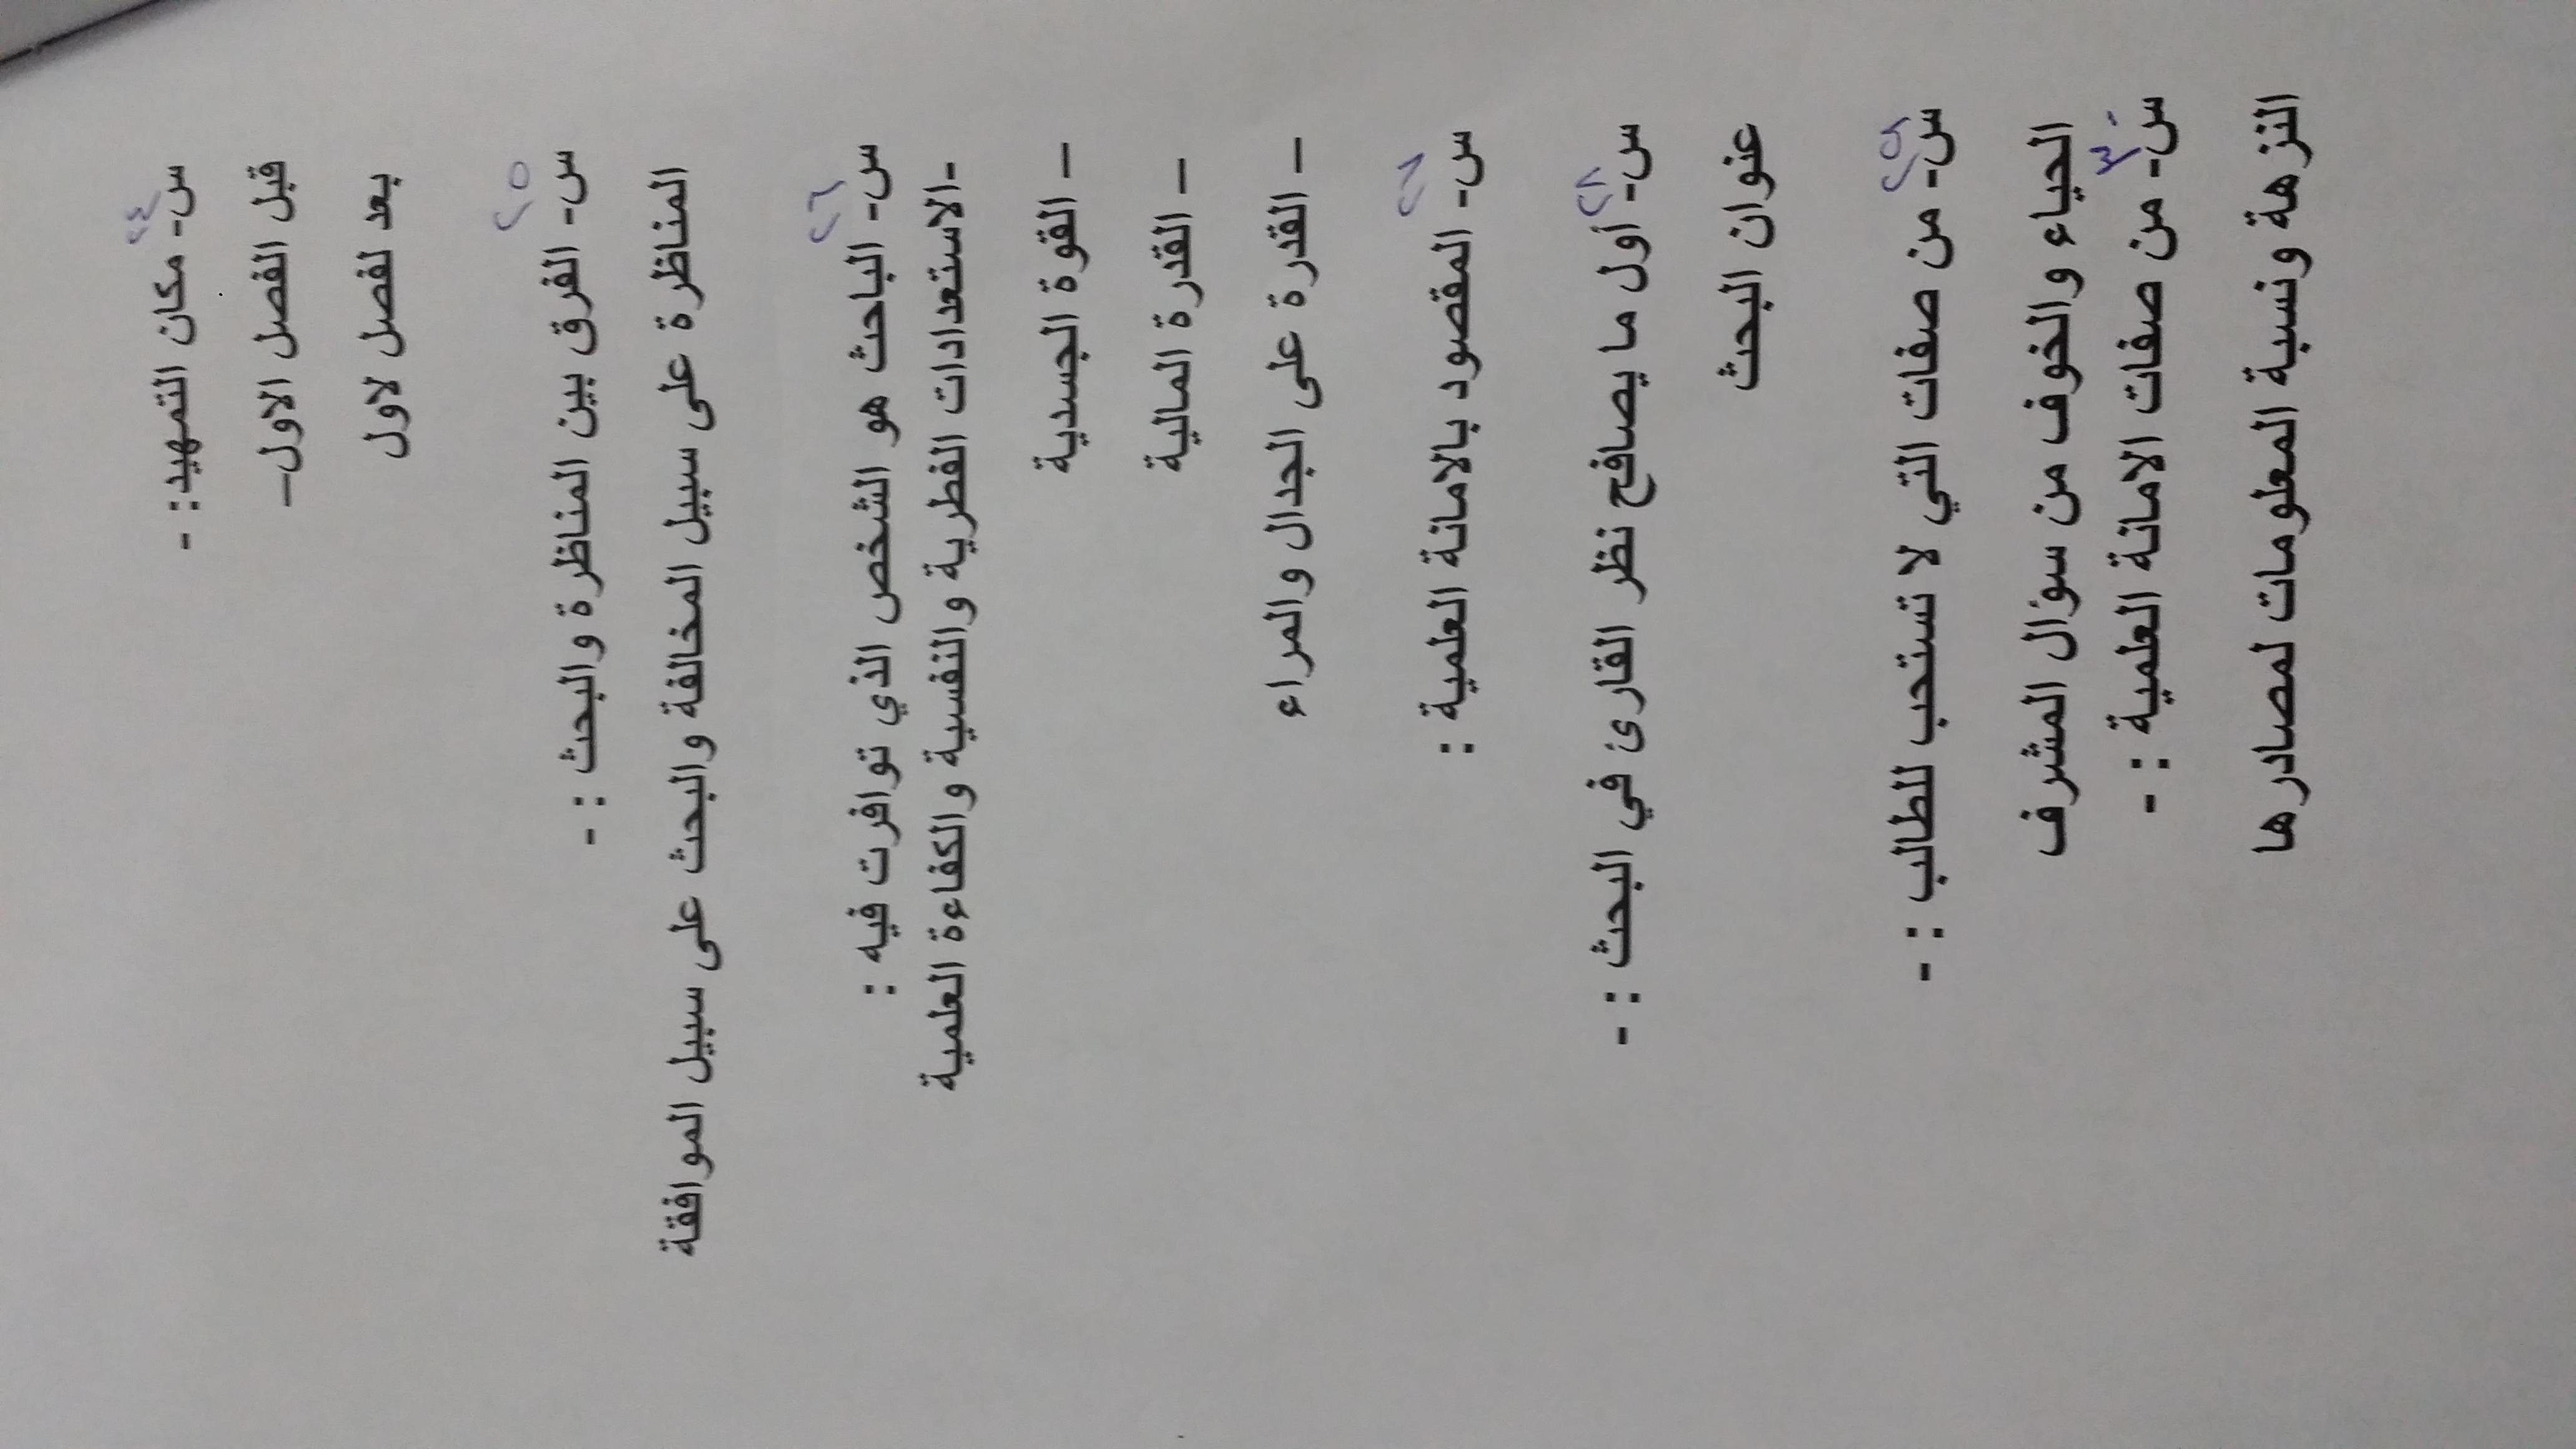 س- مكان التمهيد: -
٢٤
قبل الفصل الاول–
بعد لفصل لاول
س- الفرق بين المناظرة والبحث : -
٢٥
المناظرة على سبيل المخالفة والبحث على سبيل الموافقة
س- الباحث هو الشخص الذي توافرت فيه :
٢٦
-الاستعدادات الفطرية والنفسية والكفاءة العلمية
– القوة الجسدية
– القدرة المالية
– القدرة على الجدال والمراء
س- المقصود بالامانة العلمية :
٢٧
س- أول ما يصافح نظر القارئ في البحث : -
٢٨
عنوان البحث
س- من صفات التي لا تستحب للطالب : -
٢٩
الحياء والخوف من سؤال المشرف
س- من صفات الامانة العلمية : -
٣٠
النزهة ونسبة المعلومات لمصادرها